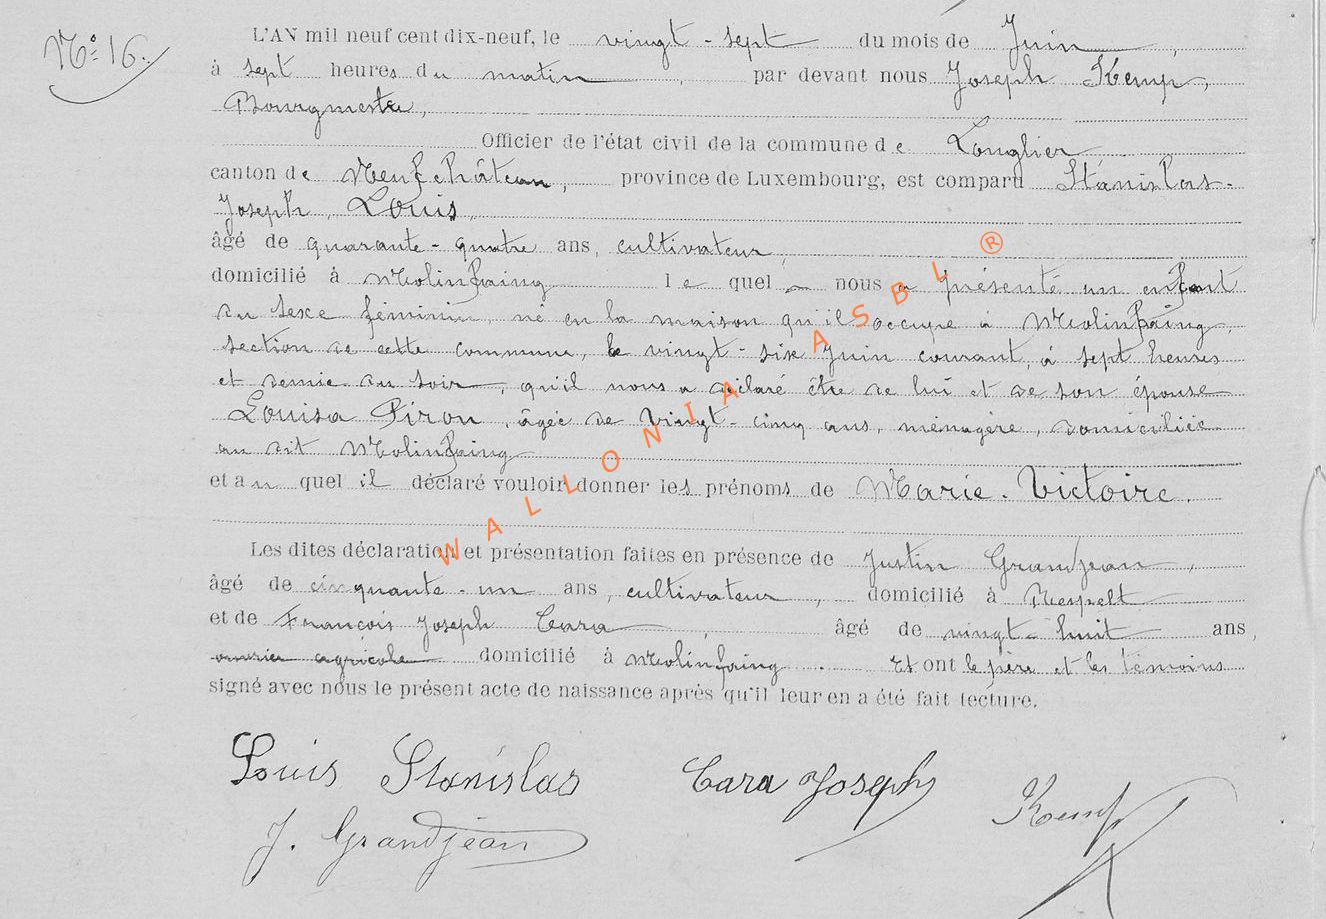 N° 16.
L'AN mil neuf cent dix-neuf, le vingt-sept du mois de Juin,
à sept heures du matin, par devant nous Joseph Kemp,
Bourgmestre,
Officier de l'état civil de la commune de Longlier
canton de Neufchâteau, province de Luxembourg, est comparu Stánislas-
Joseph, Louis,
âgé de quarante-quatre ans, cultivateur,
domicilié à Molinfaing lequel nous a présenté un enfant
du sexe féminin, né en la maison qu'il occupe à Molinfaing,
section de cette commune, le vingt-six Juin courant, à sept heures
et demie du soir, qu'il nous a déclaré être de lui et de son épouse
Louisa Piron, âgée de vingt-cinq ans, ménagère, domiciliée
au dit Molinfaing
et au quel il déclaré vouloir donner les prénoms de Marie-Victoire.
Les dites déclaration et présentation faites en présence de Justin Grandjean,
âgé de cinquante-un ans, cultivateur, domicilié à Respelt
et de François Joseph Cara, âgé de vingt-huit ans,
ouvrier agricole domicilié à Molinfaing. Et ont le père et les témoins
signé avec nous le présent acte de naissance après qu'il leur en a été fait lecture.
Louis Stanislas Cara Joseph Kemp
J. Grandjean
WALLONIA ASBL ®